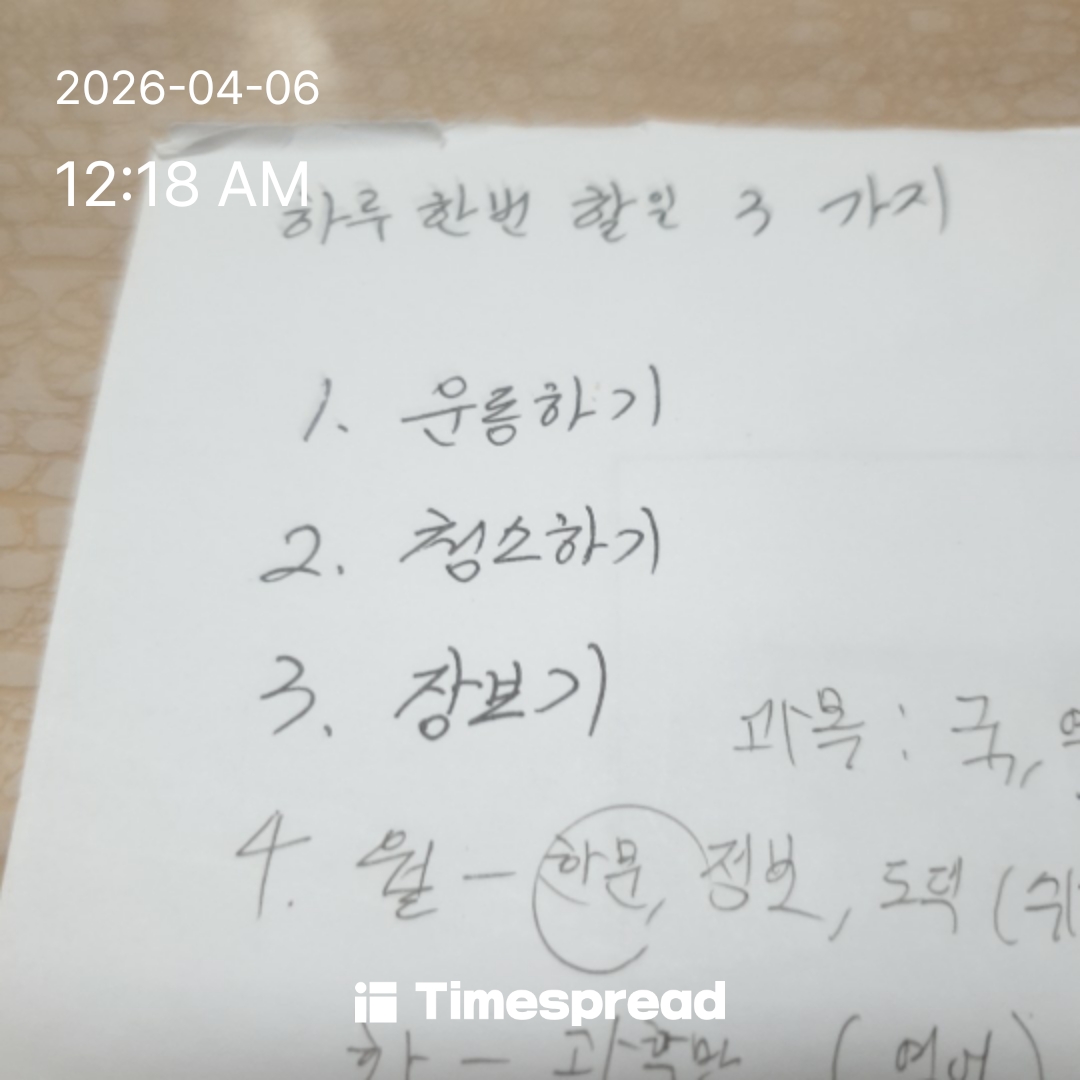 2026-04-06
12:18 AM
하루 한번 할일 3 가지
1. 운동하기
2. 청소하기
3. 장보기
과목 : 국,
4. 월 - 한문, 정보, 도덕 (쉬
화 - 과학만 (영어)
Timespread